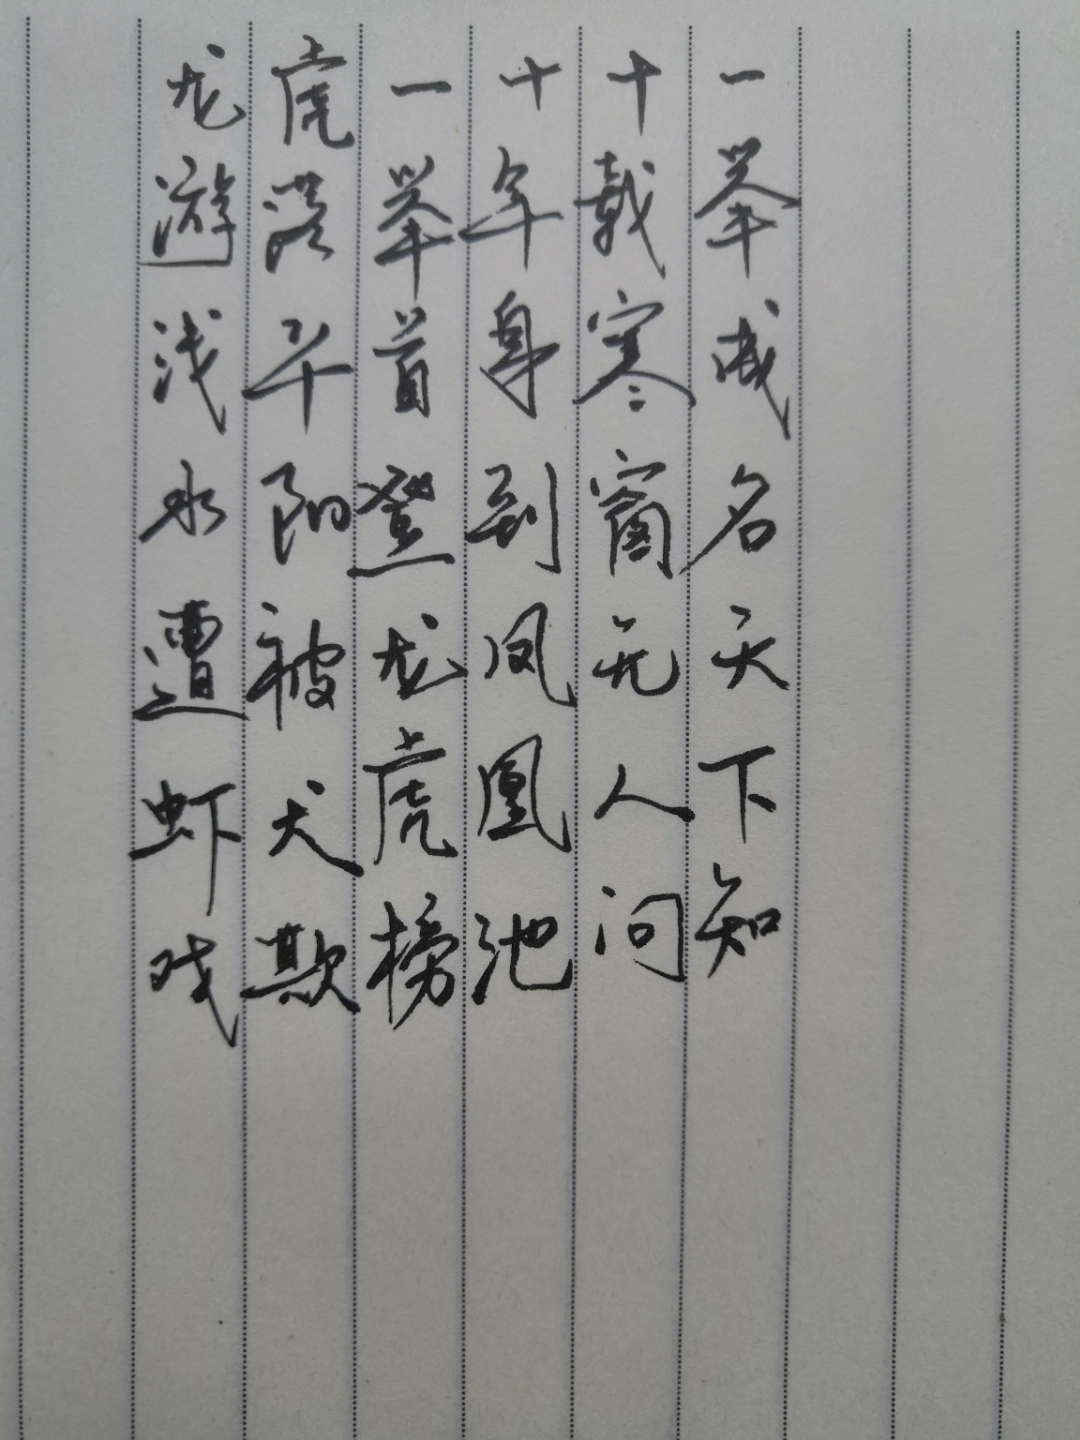 龙游浅水遭虾戏
虎落平阳被犬欺
一举首登龙虎榜
十年身到凤凰池
十载寒窗无人问
一举成名天下知